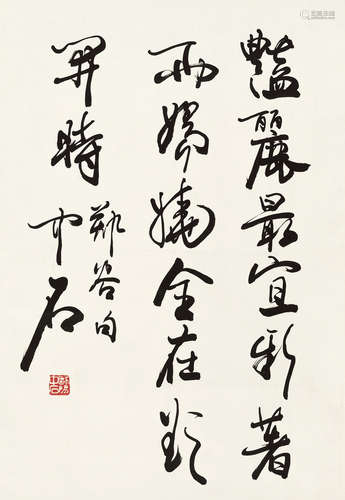 豔麗最宜新著
雨嬌嬈全在欲
開時
鄭谷句
中石